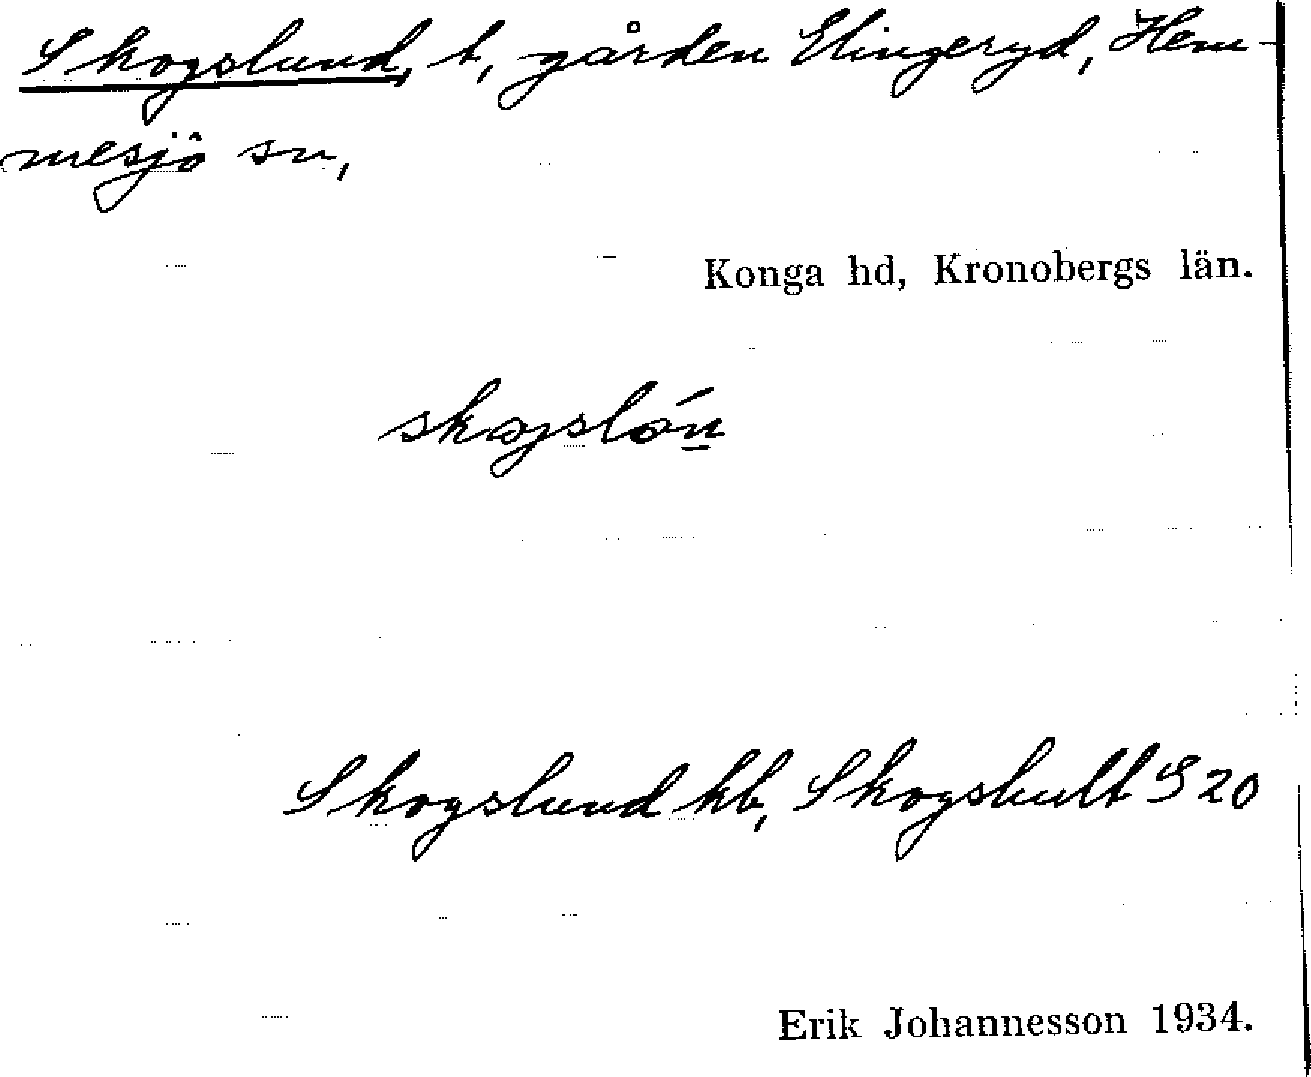 Skogslund, t, gården Elingeryd, Hem-
mesjö sn,
Konga hd, Kronobergs län.
skogslón
Skogslund kb, Skogshult S 20
Erik Johannesson 1934.